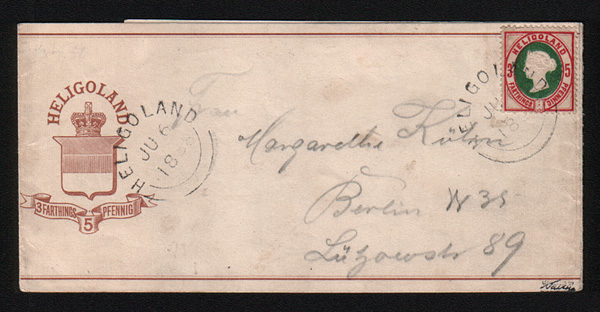 HELIGOLAND
3 FARTHINGS 5 PFENNIG
HELIGOLAND
JU 6
18
HELIGOLAND
3 5
FARTHINGS PFENNIG
HELIGOLAND
JU
Frau
Margarethe
Berlin W 35
Lützowstr 89